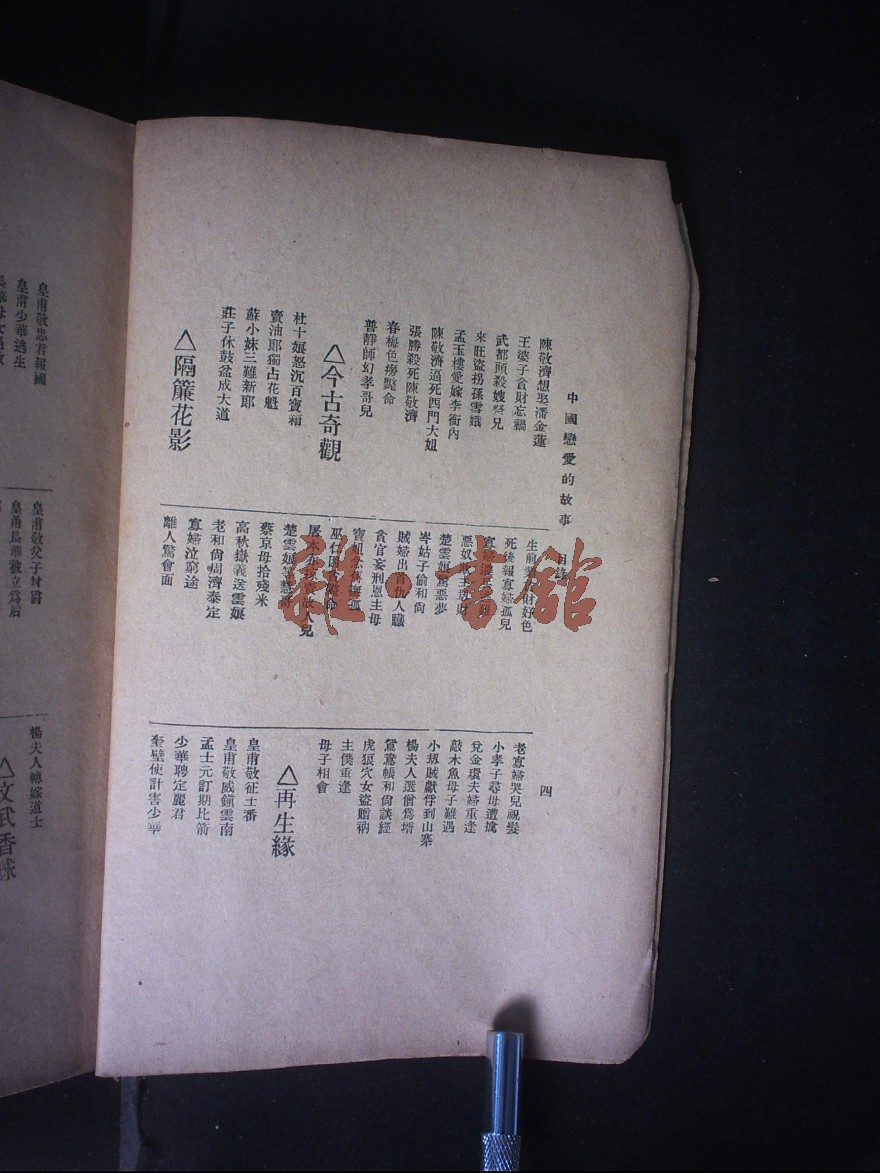 中國戀愛的故事　目錄　四
陳敬濟想娶潘金蓮
王婆子貪財忘禍
武都頭殺嫂祭兄
來旺盜拐孫雪娥
孟玉樓愛嫁李衙內
陳敬濟逼死西門大姐
張勝殺死陳敬濟
春梅色癆斃命
普靜師幻孝哥兒
△今古奇觀
杜十娘怒沉百寶箱
賣油郎獨占花魁
蘇小妹三難新郎
莊子休鼓盆成大道
△隔簾花影
生前 財好色
死後報寡婦孤兒
寡婦
惡奴 主
楚雲娘 惡夢
岑姑子偷和尙
賊婦出首仇人贓
貪官妄刑恩主母
寶姐 孤
巫仁 命
屠本赤 故人兒
楚雲娘
蔡京母拾殘米
高秋嶽義送雲娘
老和尙周濟泰定
寡婦泣窮途
離人驚會面
老寡婦哭兒祝髮
小孝子尋母遭擄
兌金環夫婦重逢
敲木魚母子難遇
小刼賊獻俘到山寨
楊夫人選僧爲壻
鴛鴦帳和尙談經
虎狼穴女盜贈衲
主僕重逢
母子相會
△再生緣
皇甫敬征土番
皇甫敬威鎭雲南
孟士元訂期比箭
少華聘定麗君
奎璧使計害少華
皇甫敬忠君報國
皇甫少華逃生
皇甫敬父子封爵
皇甫長華被立爲后
楊夫人轉嫁道士
△文武香球
雜·書館